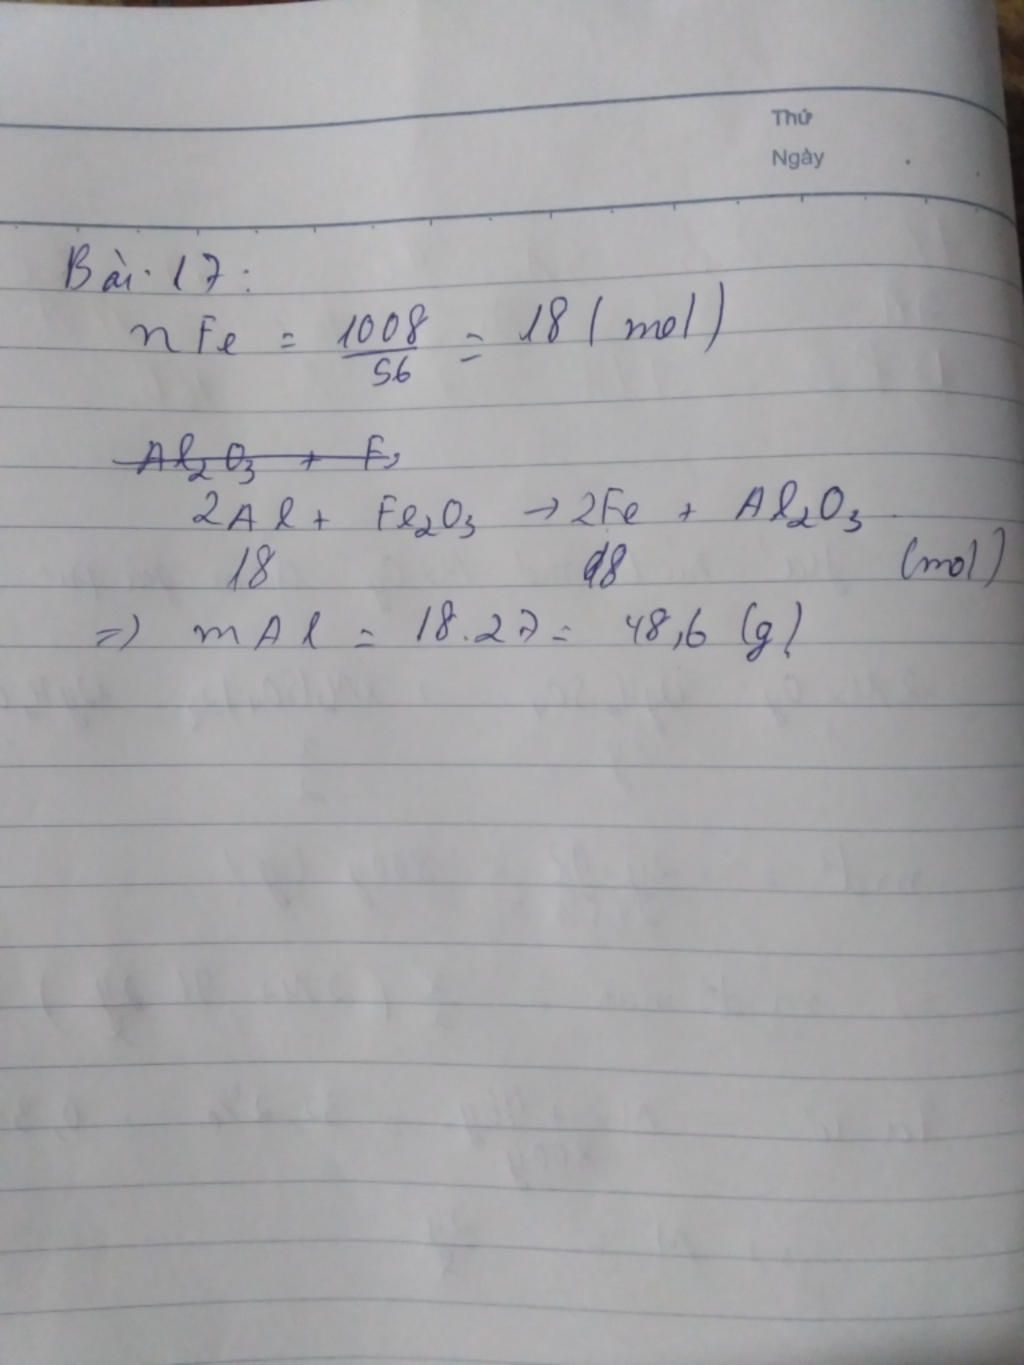 Thứ
Ngày
Bài 17:
nFe = 1008/56 = 18 (mol)
Al₂O₃ + F
2Al + Fe₂O₃ → 2Fe + Al₂O₃
18 18 (mol)
=> mAl = 18.27 = 48,6 (g)